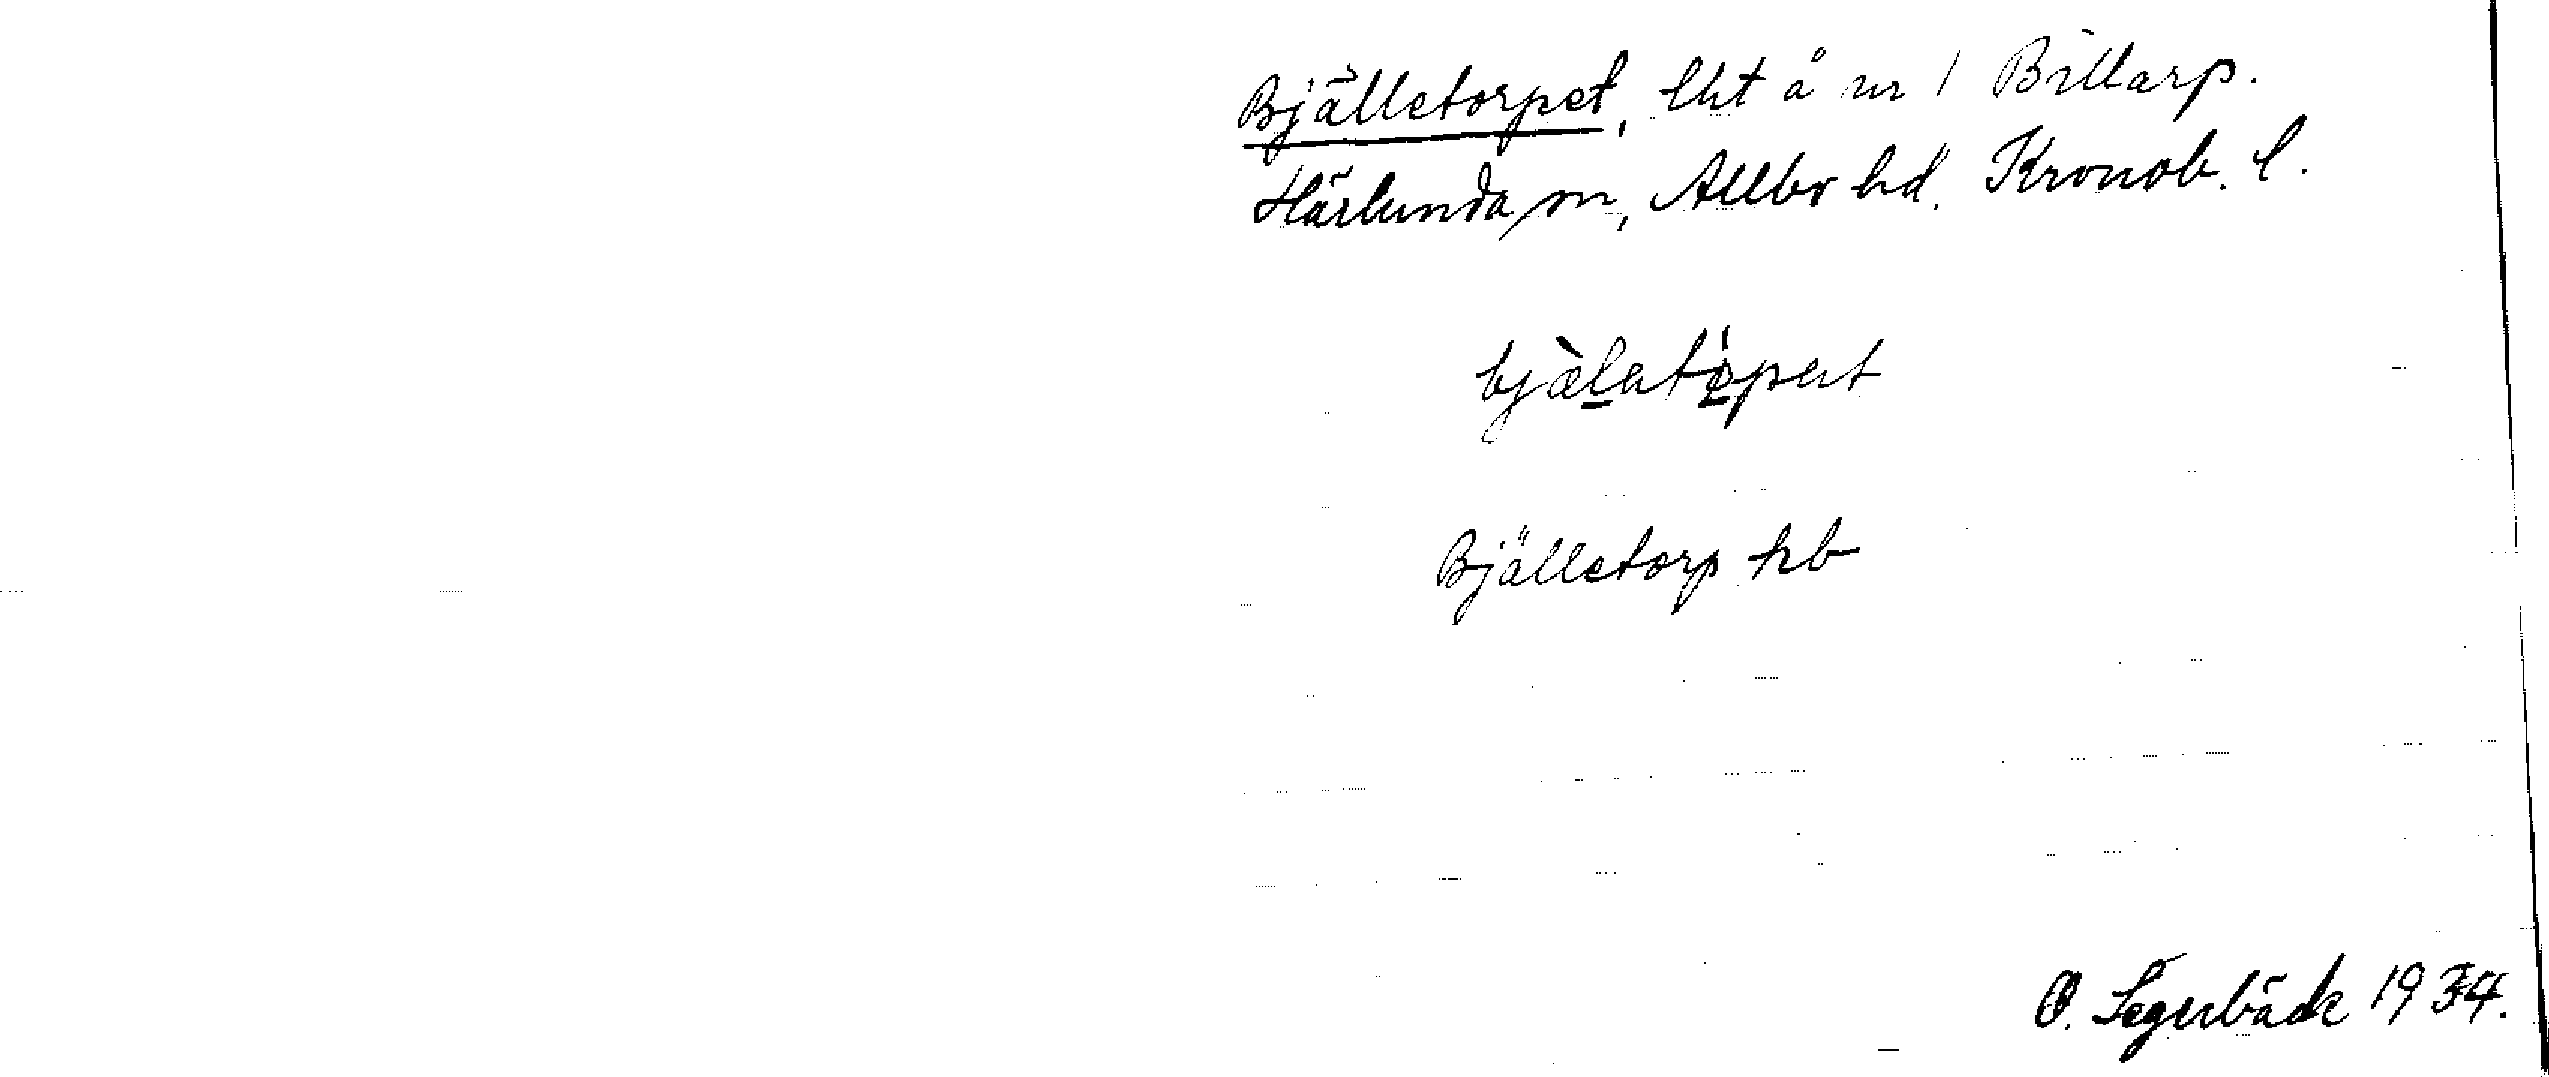 Bjälletorpet, lht å nr 1 Billarp.
Härlunda sn, Allbo hd. Kronob. l.
Bjälletorp hb
O. Segerbäck 1934.